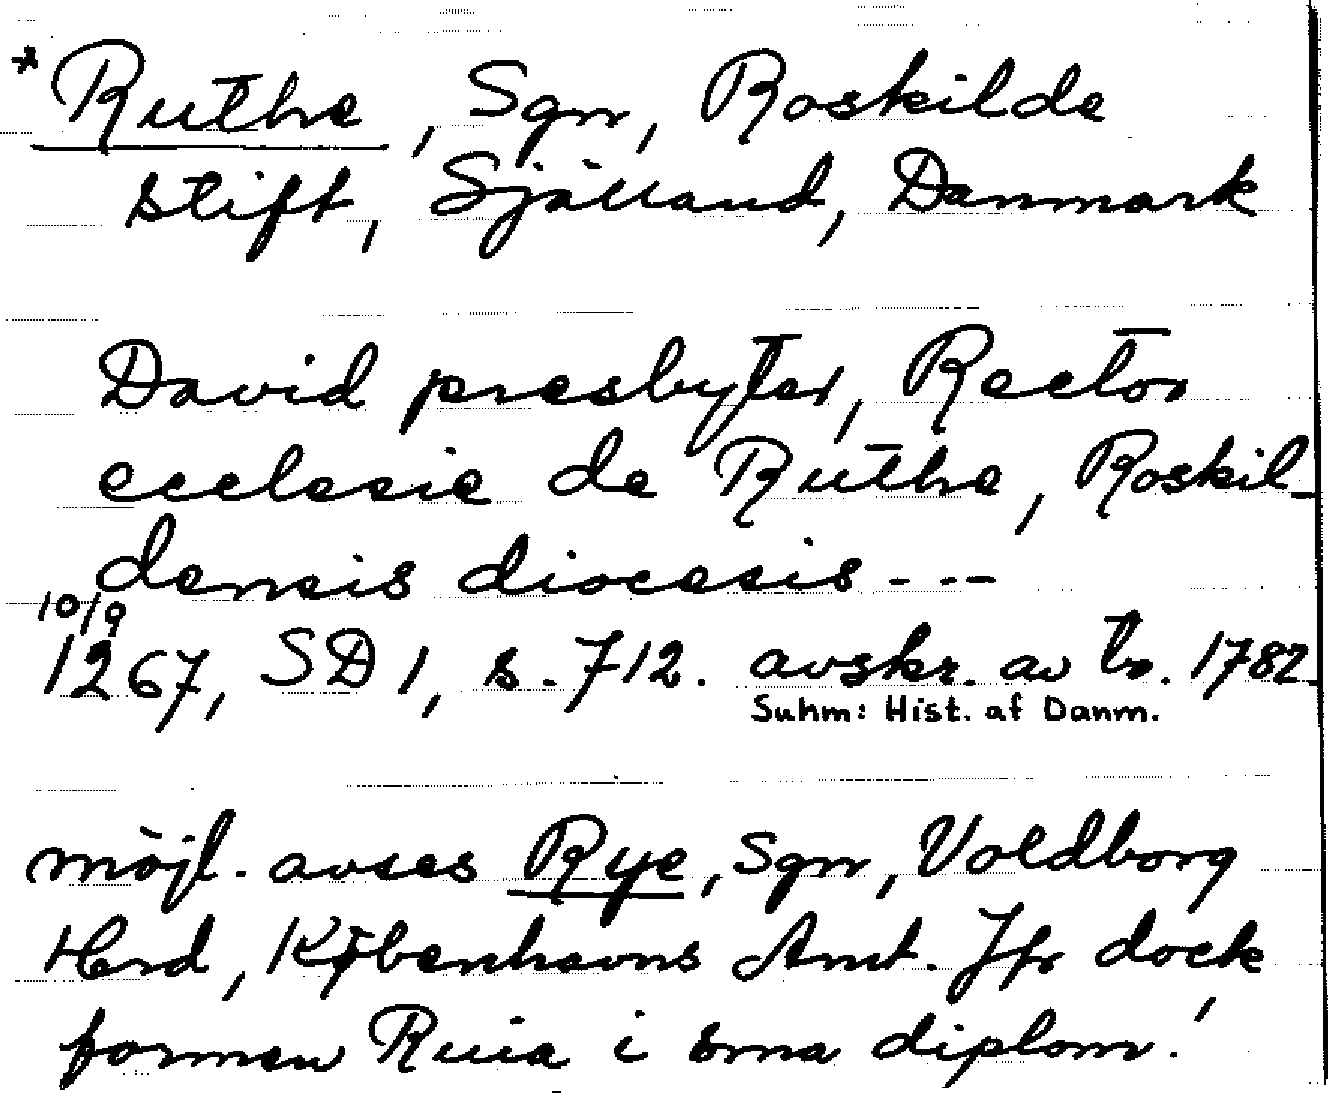 * Ruthe, Sgn, Roskilde
stift, Själland, Danmark
David presbyter, Rector
ecclesie de Ruthe, Roskil-
densis diocesis - - -
10/9
1267, SD 1, s. 712. avskr. av tr. 1782
Suhm: Hist. af Danm.
möjl. avses Rye, Sgn, Voldborg
Hrd, Københavns Amt. Jfr dock
formen Ruia i sma diplom!